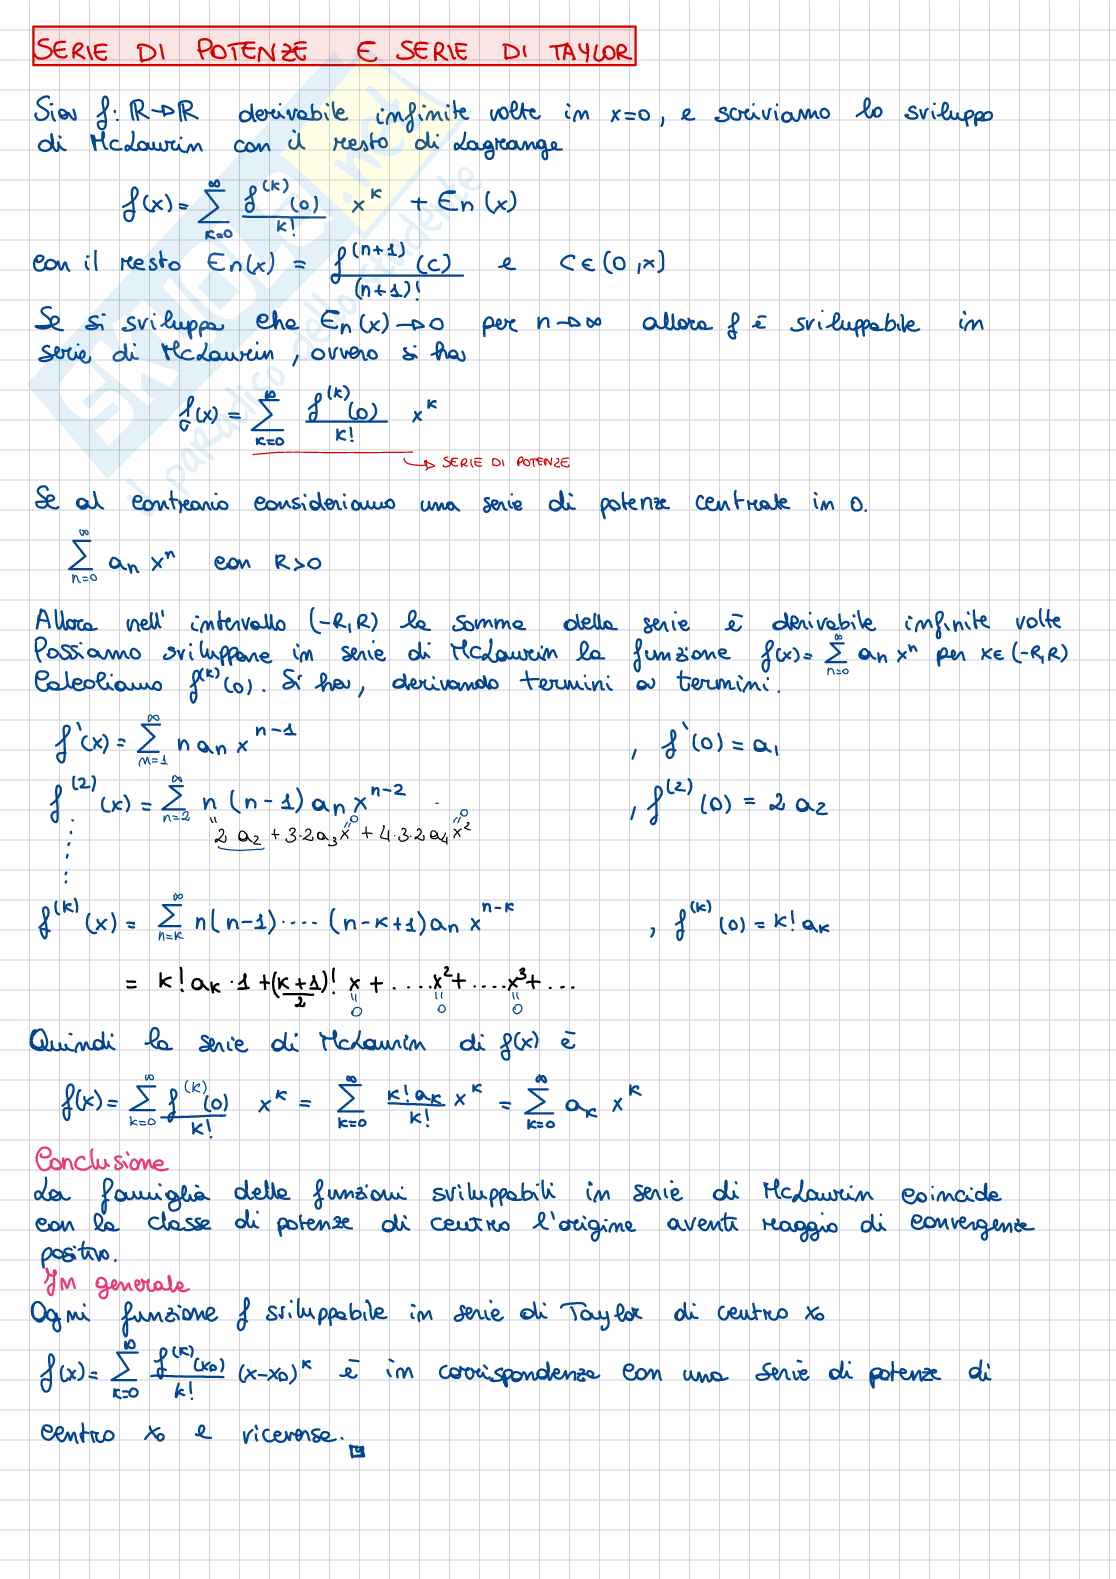 SERIE DI POTENZE E SERIE DI TAYLOR
Sia f: ℝ→ℝ derivabile infinite volte in x=0, e scriviamo lo sviluppo
di McLaurin con il resto di Lagrange
f(x) = ∑_{k=0}^{∞} f^{(k)}(0)/k! x^k + En(x)
con il resto En(x) = f^{(n+1)}(c)/(n+1)! e c∈(0,x]
Se si sviluppa che En(x)→0 per n→∞ allora f è sviluppabile in
serie di McLaurin, ovvero si ha
f(x) = ∑_{k=0}^{∞} f^{(k)}(0)/k! x^k
↳ SERIE DI POTENZE
Se al contrario consideriamo una serie di potenze centrale in 0.
∑_{n=0}^{∞} an x^n con R>0
Allora nell' intervallo (-R,R) la somma della serie è derivabile infinite volte
Possiamo sviluppare in serie di McLaurin la funzione f(x)= ∑_{n=0}^{∞} an x^n per x∈(-R,R)
Calcoliamo f^{(k)}(0). Si ha, derivando termini a termini.
f'(x) = ∑_{n=1}^{∞} n an x^{n-1} , f'(0) = a1
f^{(2)}(x) = ∑_{n=2}^{∞} n(n-1) an x^{n-2} , f^{(2)}(0) = 2 a2
" 2 a2 + 3·2 a3 x + 4·3·2 a4 x^2
"0 "0
f^{(k)}(x) = ∑_{n=k}^{∞} n(n-1)····(n-k+1) an x^{n-k} , f^{(k)}(0) = k! ak
= k! ak · 1 + (k+1)!/2 x + ....x^2 + ....x^3 + ...
"0 "0 "0
Quindi la serie di McLaurin di f(x) è
f(x) = ∑_{k=0}^{∞} f^{(k)}(0)/k! x^k = ∑_{k=0}^{∞} k! ak/k! x^k = ∑_{k=0}^{∞} ak x^k
Conclusione
La famiglia delle funzioni sviluppabili in serie di McLaurin coincide
con la classe di potenze di centro l'origine aventi raggio di convergenza
positivo.
In generale
Ogni funzione f sviluppabile in serie di Taylor di centro x0
f(x) = ∑_{k=0}^{∞} f^{(k)}(x0)/k! (x-x0)^k è in corrispondenza con una serie di potenze di
centro x0 e viceversa.
SKUOLA.net
il paradiso dello studente